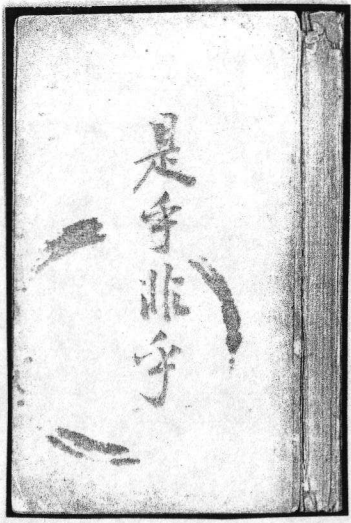 是乎非乎